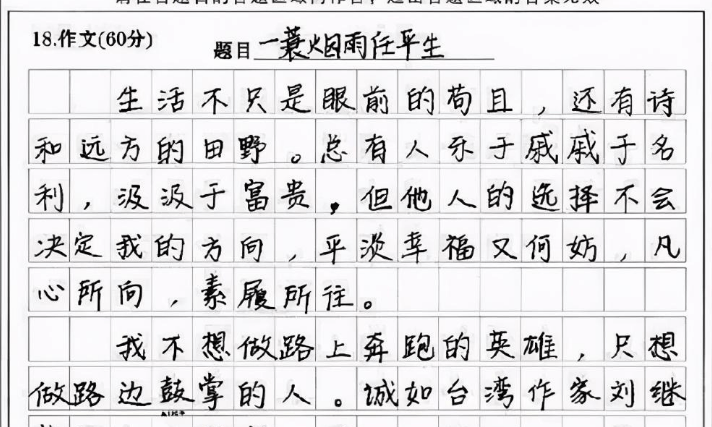 18.作文(60分) 题目 一蓑烟雨任平生
生活不只是眼前的苟且，还有诗
和远方的田野。总有人乐于戚戚于名
利，汲汲于富贵，但他人的选择不会
决定我的方向，平淡幸福又何妨，凡
心所向，素履所往。
我不想做路上奔跑的英雄，只想
做路边鼓掌的人。诚如台湾作家刘继